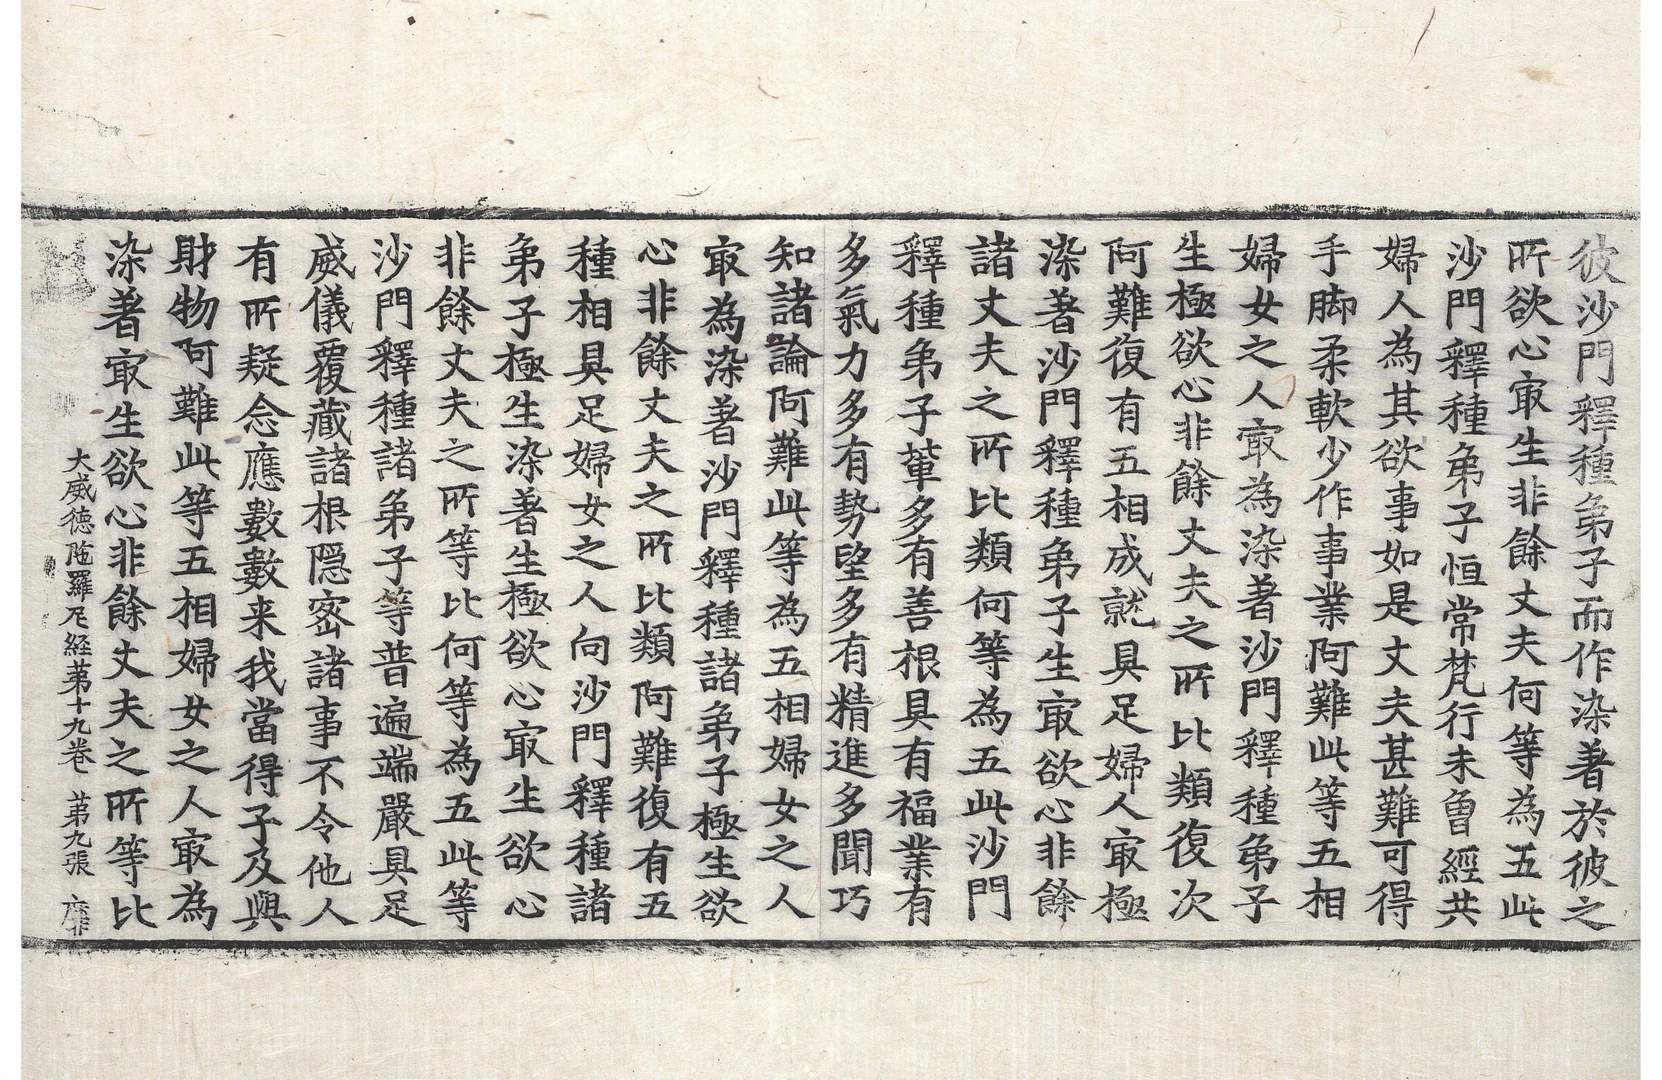 彼沙門釋種弟子而作染著於彼之
所欲心㝡生非餘丈夫何等為五此
沙門釋種弟子恒常梵行未曾經共
婦人為其欲事如是丈夫甚難可得
手脚柔軟少作事業阿難此等五相
婦女之人㝡為染著沙門釋種弟子
生極欲心非餘丈夫之所比類復次
阿難復有五相成就具足婦人㝡極
染著沙門釋種弟子生㝡欲心非餘
諸丈夫之所比類何等為五此沙門
釋種弟子輩多有善根具有福業有
多氣力多有勢望多有精進多聞巧
知諸論阿難此等為五相婦女之人
㝡為染著沙門釋種諸弟子極生欲
心非餘丈夫之所比類阿難復有五
種相具足婦女之人向沙門釋種諸
弟子極生染著生極欲心㝡生欲心
非餘丈夫之所等比何等為五此等
沙門釋種諸弟子等普遍端嚴具足
威儀覆藏諸根隱密諸事不令他人
有所疑念應數數来我當得子及與
財物阿難此等五相婦女之人㝡為
染著㝡生欲心非餘丈夫之所等比
大威德陁羅尼經苐十九卷 苐九張